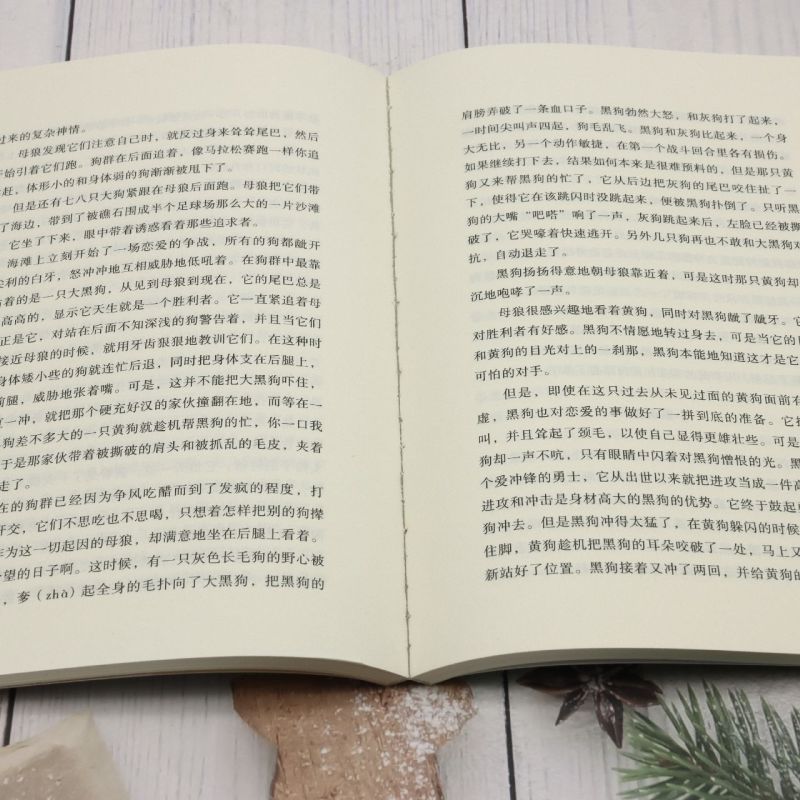 过来的复杂神情。
母狼发现它们注意自己时，就反过身来耸耸尾巴，然后
开始引着它们跑。狗群在后面追着，像马拉松赛跑一样你追
赶，体形小的和身体弱的狗渐渐被甩下了。
但是还有七八只大狗紧跟在母狼后面跑。母狼把它们带
了海边，带到了被礁石围成半个足球场那么大的一片沙滩
它坐了下来，眼中带着诱惑看着那些追求者。
海滩上立刻开始了一场恋爱的争战，所有的狗都龇开
尖利的白牙，怒冲冲地互相威胁地低吼着。在狗群中最靠
着的是一只大黑狗，从见到母狼到现在，它的尾巴总是
高高的，显示它天生就是一个胜利者。它一直紧追着母
正是它，对站在后面不知深浅的狗警告着，并且当它们
接近母狼的时候，就用牙齿狠狠地教训它们。在这种时
身体矮小些的狗就连忙后退，同时把身体支在后腿上，
前腿，威胁地张着嘴。可是，这并不能把大黑狗吓住，
一冲，就把那个硬充好汉的家伙撞翻在地，而等在一
狗差不多大的一只黄狗就趁机帮黑狗的忙，你一口我
于是那家伙带着被撕破的肩头和被抓乱的毛皮，夹着
走了。
在的狗群已经因为争风吃醋而到了发疯的程度，打
开交，它们不思吃也不思喝，只想着怎样把别的狗撵
作为这一切起因的母狼，却满意地坐在后腿上看着。
望的日子啊。这时候，有一只灰色长毛狗的野心被
，奓（zhà）起全身的毛扑向了大黑狗，把黑狗的
肩膀弄破了一条血口子。黑狗勃然大怒，和灰狗打了起来，
一时间尖叫声四起，狗毛乱飞。黑狗和灰狗比起来，一个身
大无比，另一个动作敏捷，在第一个战斗回合里各有损伤。
如果继续打下去，结果如何本来是很难预料的，但是那只黄
狗又来帮黑狗的忙了，它从后边把灰狗的尾巴咬住扯了一
下，使得它在该跳闪时没跳起来，便被黑狗扑倒了。只听黑
狗的大嘴“吧嗒”响了一声，灰狗跳起来后，左脸已经被撕
破了，它哭嚎着快速逃开。另外几只狗再也不敢和大黑狗对
抗，自动退走了。
黑狗扬扬得意地朝母狼靠近着，可是这时那只黄狗却
沉地咆哮了一声。
母狼很感兴趣地看着黄狗，同时对黑狗龇了龇牙。它
对胜利者有好感。黑狗不情愿地转过身去，可是当它的
和黄狗的目光对上的一刹那，黑狗本能地知道这才是它
可怕的对手。
但是，即使在这只过去从未见过面的黄狗面前有
虚，黑狗也对恋爱的事做好了一拼到底的准备。它
叫，并且耸起了颈毛，以使自己显得更雄壮些。可是
狗却一声不吭，只有眼睛中闪着对黑狗憎恨的光。黑
个爱冲锋的勇士，它从出世以来就把进攻当成一件高
进攻和冲击是身材高大的黑狗的优势。它终于鼓起
狗冲去。但是黑狗冲得太猛了，在黄狗躲闪的时候
住脚，黄狗趁机把黑狗的耳朵咬破了一处，马上又
新站好了位置。黑狗接着又冲了两回，并给黄狗的